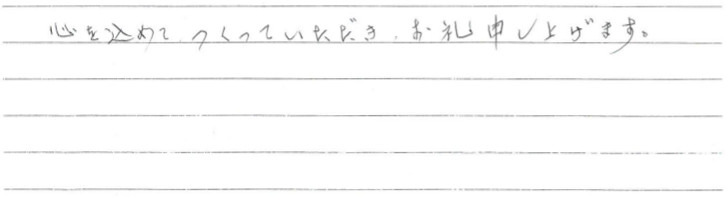 心を込めて、つくっていただき、お礼申し上げます。